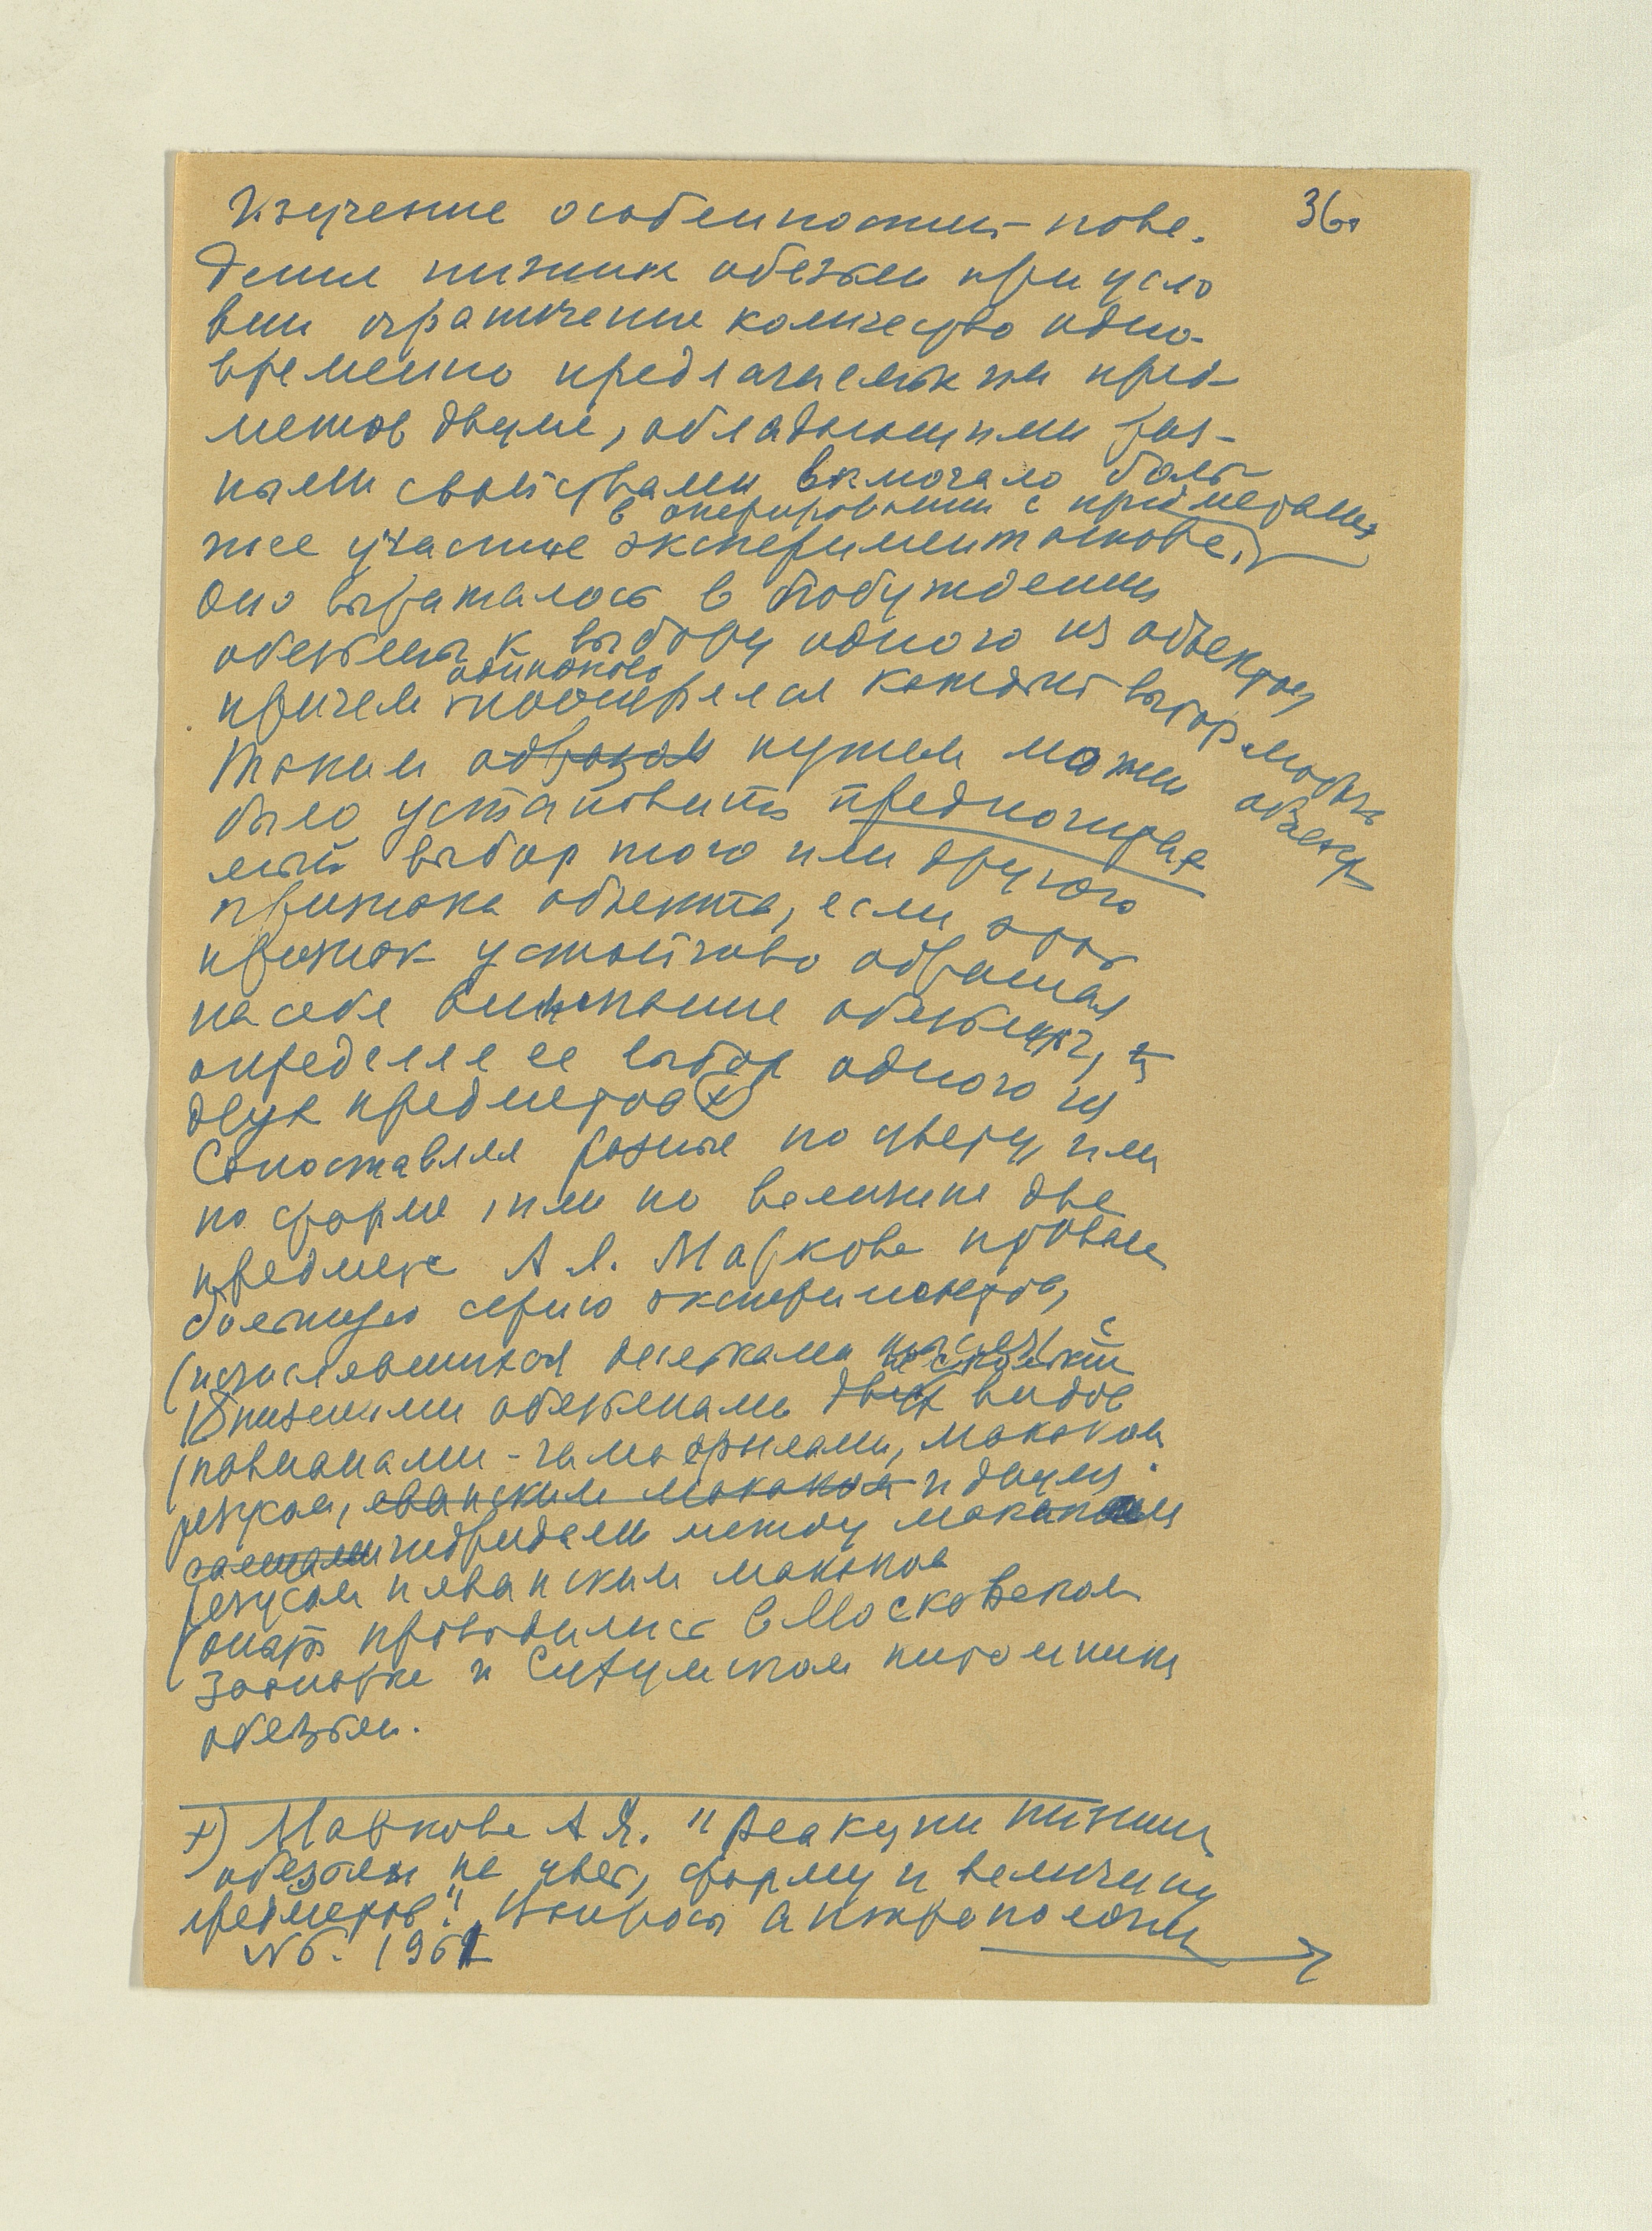 36
Изучение особенностей пове-
дения низших обезьян при усло
вии ограничения количества одно-
временно предлагаемых им пред-
метов двумя, обладающими раз-
ными свойствами включало боль
в оперировании с предметами
шее участие экспериментатора.
Оно выражалось в побуждении
обезьяны к выбору одного из объектов
одинаково
причем поощрялся каждый выбор любого объекта
Таким образом путем можно
было установить предпочитае
мый выбор того или другого
признака объекта, если этот
признак устойчиво обращал
на себя внимание обезьяны,
определяя ее выбор одного из
двух предметов +)
Сопоставляя разные по цвету, или
по форме, или по величине два
предмета А.Я. Маркова провела
большую серию экспериментов,
(исчислявшихся десятками тысяч) с
низшими обезьянами видов
(павианами-гамадрилами, макаком
резусом, яванским макаком и двумя
гибридами между макаком
резусом и яванским макаком
Опыты проводились в Московском
Зоопарке и Сухумском питомнике
обезьян.
+) Маркова А.Я. "Реакции низших
обезьян на цвет, форму и величину
предметов". Вопросы антропологии
№6. 1961